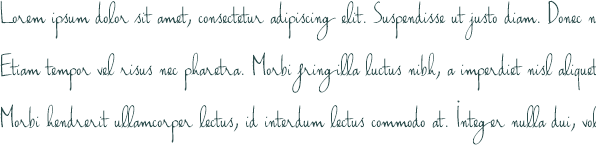 Lorem ipsum dolor sit amet, consectetur adipiscing elit. Suspendisse ut justo diam. Donec n
Etiam tempor vel risus nec pharetra. Morbi fringilla luctus nibh, a imperdiet nisl aliquet
Morbi hendrerit ullamcorper lectus, id interdum lectus commodo at. Integer nulla dui, vol